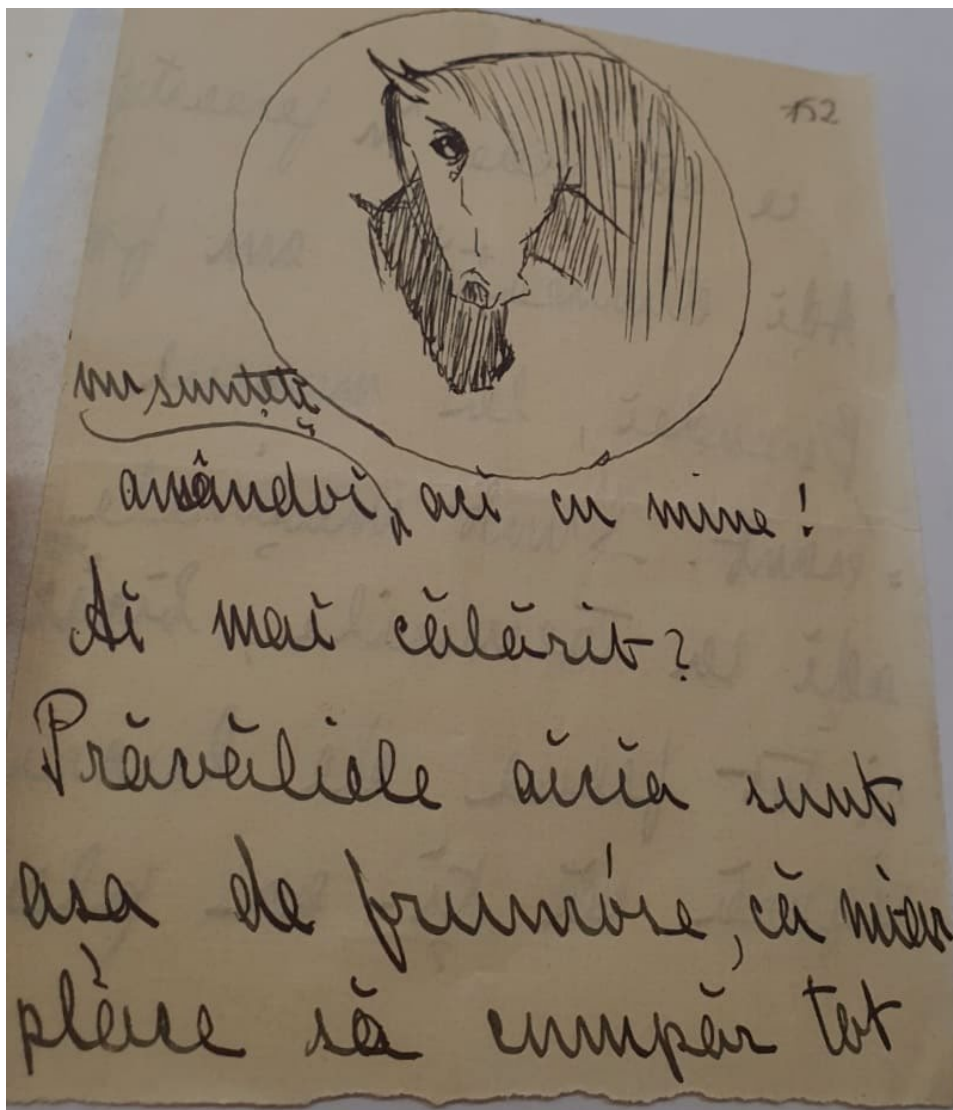 152
nu sunteți
amândoi, aci cu mine!
Ai mai călărit?
Prăvăliele aicia sunt
așa de frumóse, că miar
plăce să cumpăr tot